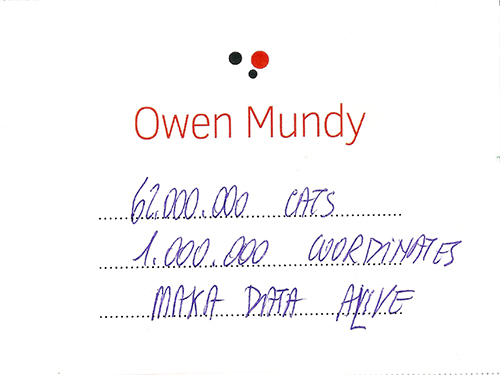 Owen Mundy
62.000.000 CATS
1.000.000 COORDINATES
MAKA DATA ALIVE